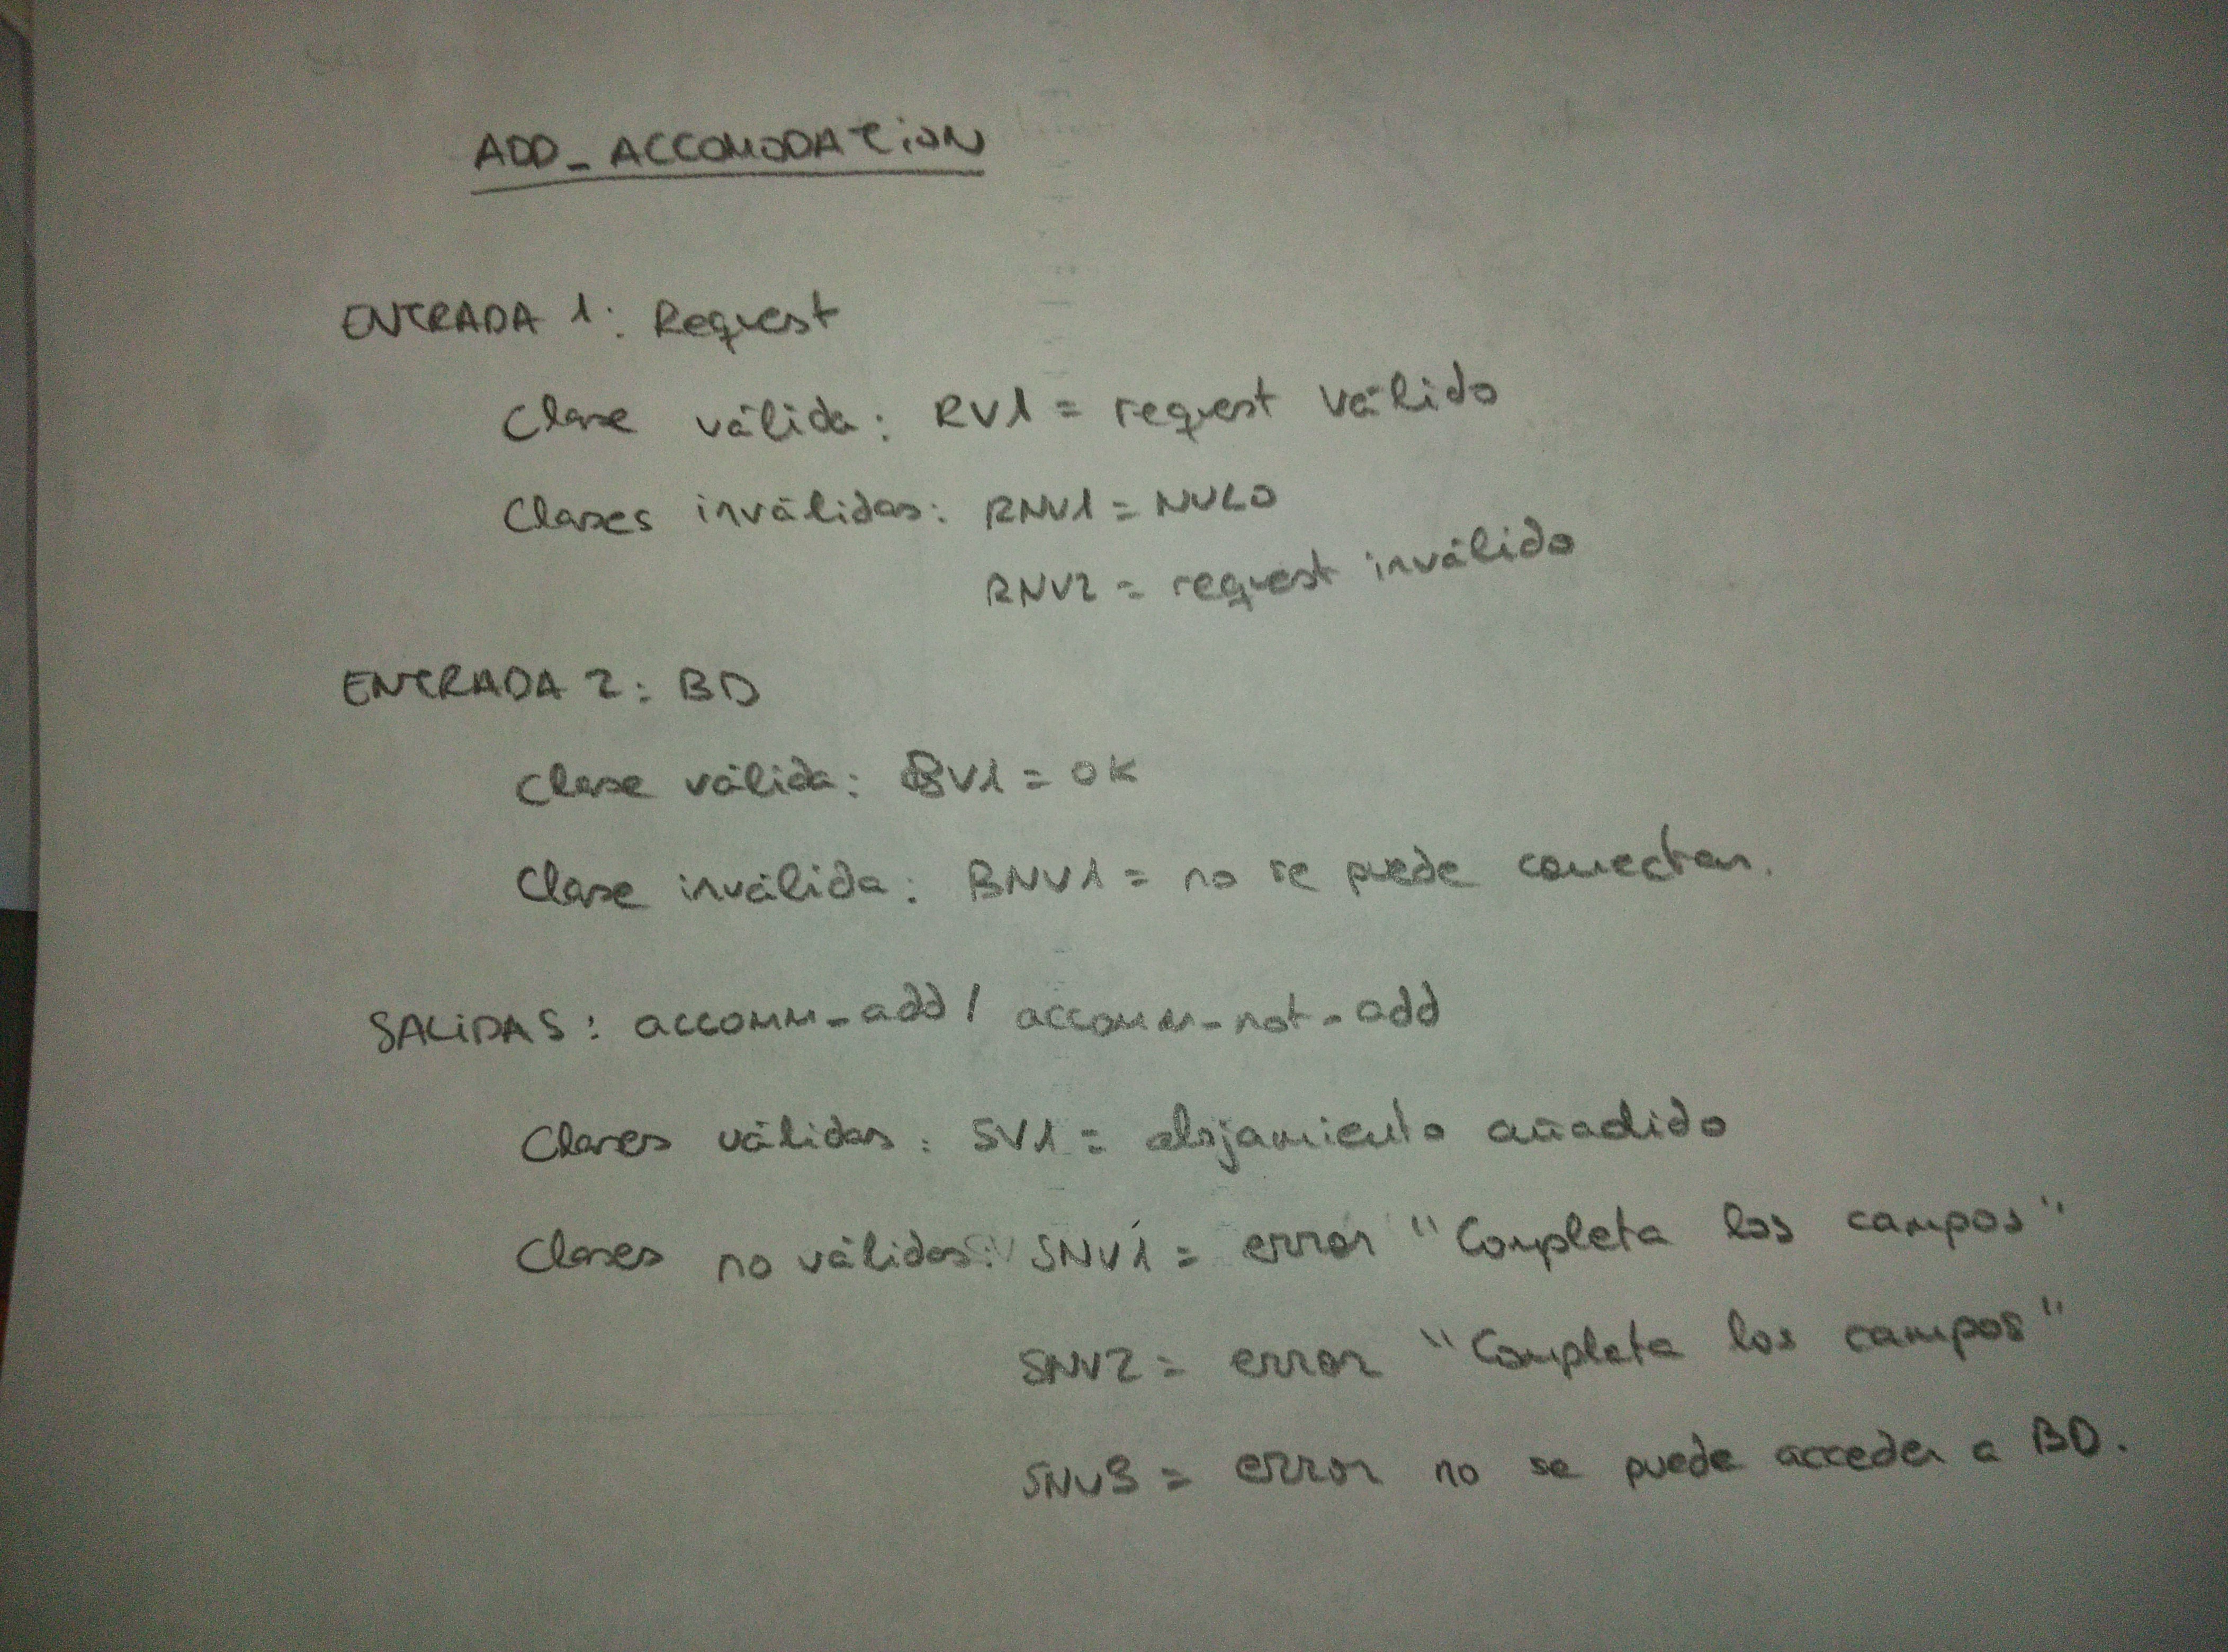 ADD_ACCOMODATION
ENTRADA 1: Request
Clase válida: RV1 = request válido
Clases inválidas: RNV1 = NULO
RNV2 = request inválido
ENTRADA 2: BD
Clase válida: BV1 = OK
Clase inválida: BNV1 = no se puede conectar.
SALIDAS: accomm_add / accomm_not_add
Clases válidas: SV1 = alojamiento añadido
Clases no válidas: SNV1 = error "Completa los campos"
SNV2 = error "Completa los campos"
SNV3 = error no se puede acceder a BD.